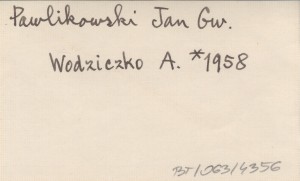 Pawlikowski Jan Gw.
Wodziczko A. *1958
BT/063/4356